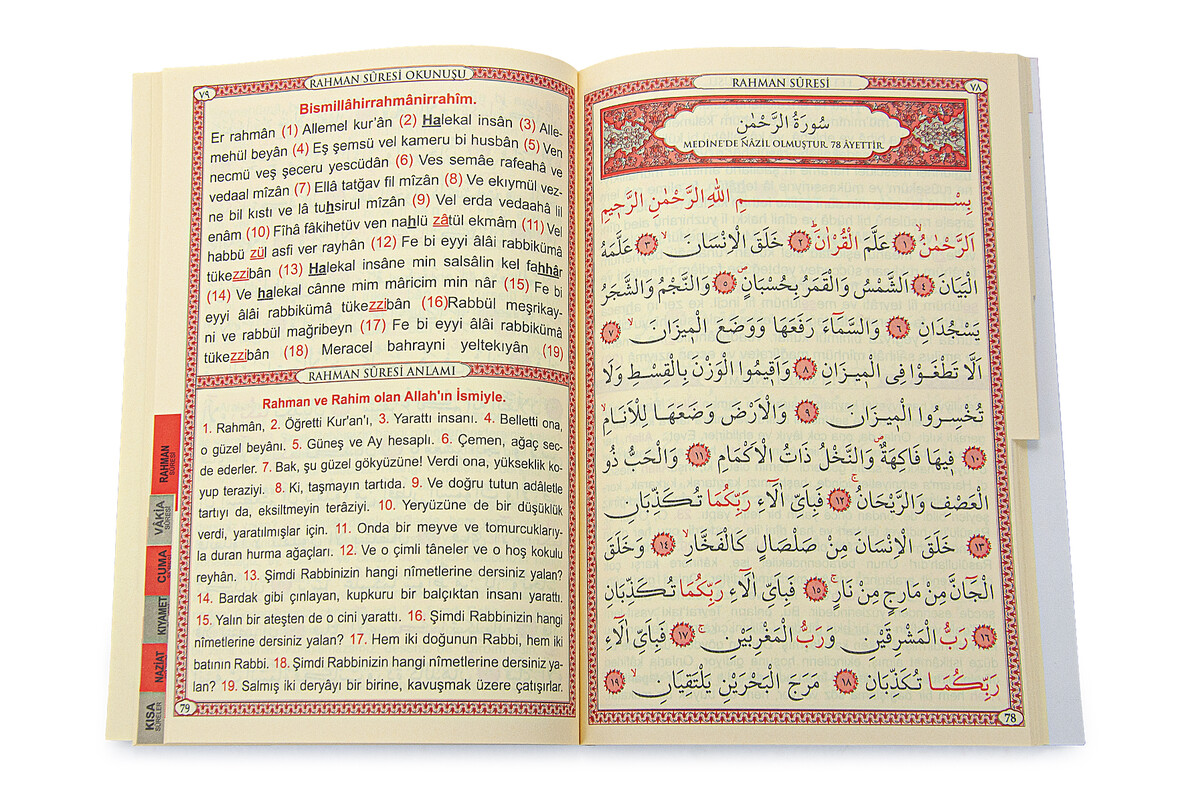 RAHMAN SÛRESİ
٧٨
سُورَةُ الرَّحْمٰنِ
MEDİNE'DE NÂZİL OLMUŞTUR. 78 ÂYETTİR.
بِسْــــمِ اللّٰهِ الرَّحْمٰنِ الرَّحِيمِ
اَلرَّحْمٰنُۙ ﴿١﴾ عَلَّمَ الْقُرْاٰنَۜ ﴿٢﴾ خَلَقَ الْاِنْسَانَۙ ﴿٣﴾ عَلَّمَهُ
الْبَيَانَ ﴿٤﴾ اَلشَّمْسُ وَالْقَمَرُ بِحُسْبَانٍۖ ﴿٥﴾ وَالنَّجْمُ وَالشَّجَرُ
يَسْجُدَانِ ﴿٦﴾ وَالسَّمَٓاءَ رَفَعَهَا وَوَضَعَ الْم۪يزَانَۙ ﴿٧﴾
اَلَّا تَطْغَوْا فِي الْم۪يزَانِ ﴿٨﴾ وَاَق۪يمُوا الْوَزْنَ بِالْقِسْطِ وَلَا
تُخْسِرُوا الْم۪يزَانَ ﴿٩﴾ وَالْاَرْضَ وَضَعَهَا لِلْاَنَامِۙ
﴿١٠﴾ ف۪يهَا فَاكِهَةٌۖ وَالنَّخْلُ ذَاتُ الْاَكْمَامِ ﴿١١﴾ وَالْحَبُّ ذُو
الْعَصْفِ وَالرَّيْحَانُۚ ﴿١٢﴾ فَبِاَيِّ اٰلَٓاءِ رَبِّكُمَا تُكَذِّبَانِ
﴿١٣﴾ خَلَقَ الْاِنْسَانَ مِنْ صَلْصَالٍ كَالْفَخَّارِۙ ﴿١٤﴾ وَخَلَقَ
الْجَٓانَّ مِنْ مَارِجٍ مِنْ نَارٍۚ ﴿١٥﴾ فَبِاَيِّ اٰلَٓاءِ رَبِّكُمَا تُكَذِّبَانِ
﴿١٦﴾ رَبُّ الْمَشْرِقَيْنِ وَرَبُّ الْمَغْرِبَيْنِۚ ﴿١٧﴾ فَبِاَيِّ اٰلَٓاءِ
رَبِّكُمَا تُكَذِّبَانِ ﴿١٨﴾ مَرَجَ الْبَحْرَيْنِ يَلْتَقِيَانِۙ ﴿١٩﴾
78
RAHMAN SÛRESİ OKUNUŞU
٧٩
Bismillâhirrahmânirrahîm.
Er rahmân (1) Allemel kur'ân (2) Halekal insân (3) Alle-
mehül beyân (4) Eş şemsü vel kameru bi husbân (5) Ven
necmü veş şeceru yescüdân (6) Ves semâe rafeahâ ve
vedaal mîzân (7) Ellâ tatğav fil mîzân (8) Ve ekıymül vez-
ne bil kıstı ve lâ tuhsirul mîzân (9) Vel erda vedaahâ lil
enâm (10) Fîhâ fâkihetüv ven nahlü zâtül ekmâm (11) Vel
habbü zül asfi ver rayhân (12) Fe bi eyyi âlâi rabbikümâ
tükezzibân (13) Halekal insâne min salsâlin kel fahhâr
(14) Ve halekal cânne mim mâricim min nâr (15) Fe bi
eyyi âlâi rabbikümâ tükezzibân (16)Rabbül meşrikay-
ni ve rabbül mağribeyn (17) Fe bi eyyi âlâi rabbikümâ
tükezzibân (18) Meracel bahrayni yeltekıyân (19)
RAHMAN SÛRESİ ANLAMI
Rahman ve Rahim olan Allah'ın İsmiyle.
1. Rahmân, 2. Öğretti Kur'an'ı, 3. Yarattı insanı. 4. Belletti ona,
o güzel beyânı. 5. Güneş ve Ay hesaplı. 6. Çemen, ağaç sec-
de ederler. 7. Bak, şu güzel gökyüzüne! Verdi ona, yükseklik ko-
yup teraziyi. 8. Ki, taşmayın tartıda. 9. Ve doğru tutun adâletle
tartıyı da, eksiltmeyin terâziyi. 10. Yeryüzüne de bir düşüklük
verdi, yaratılmışlar için. 11. Onda bir meyve ve tomurcukları-
yla duran hurma ağaçları. 12. Ve o çimli tâneler ve o hoş kokulu
reyhân. 13. Şimdi Rabbinizin hangi nîmetlerine dersiniz yalan?
14. Bardak gibi çınlayan, kupkuru bir balçıktan insanı yarattı.
15. Yalın bir ateşten de o cini yarattı. 16. Şimdi Rabbinizin hangi
nîmetlerine dersiniz yalan? 17. Hem iki doğunun Rabbi, hem iki
batının Rabbi. 18. Şimdi Rabbinizin hangi nîmetlerine dersiniz ya-
lan? 19. Salmış iki deryâyı bir birine, kavuşmak üzere çatışırlar.
79
RAHMAN
SÛRESİ
VÂKİA
SÛRESİ
CUMA
KIYAMET
NAZİAT
KISA
SÛRELER